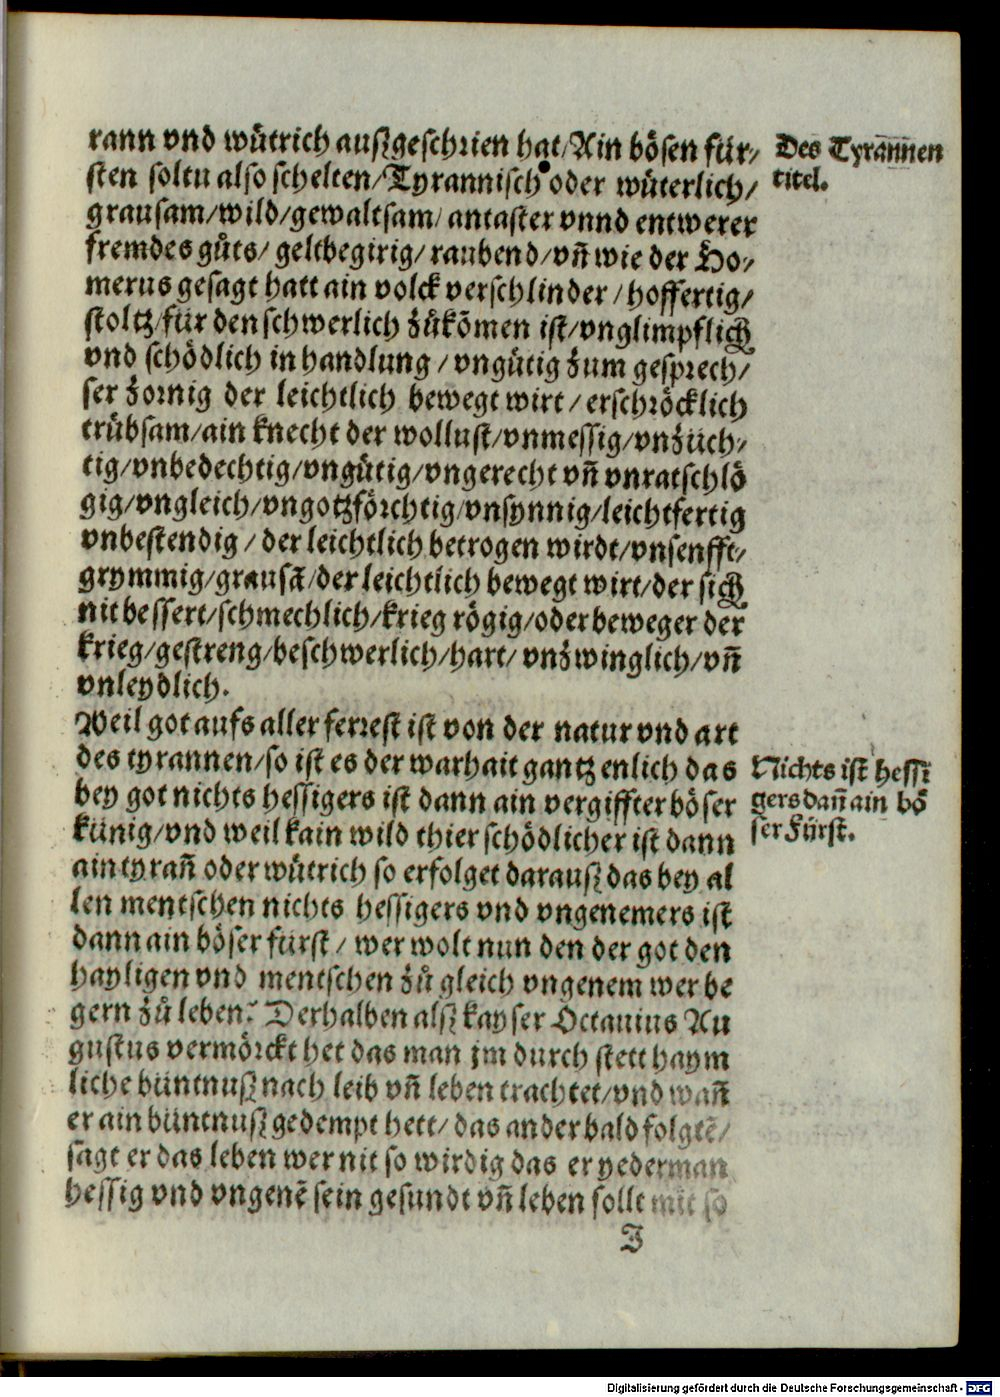 rann vnd wůtrich außgeschrien hat/Ain bösen für⸗
sten soltu also schelten/Tyrannisch oder wůterlich/
grausam/wild/gewaltsam/antaster vnnd entwerer
fremdes gůts/geltbegirig/raubend/vñ wie der Ho⸗
merus gesagt hatt ain volck verschlinder/hoffertig/
stoltz/für den schwerlich zůkõmen ist/vnglimpflich
vnd schödlich in handlung/vngütig zum gesprech/
ser zornig der leichtlich bewegt wirt/erschröcklich
trübsam/ain knecht der wollust/vnmessig/vnzüch⸗
tig/vnbedechtig/vngütig/vngerecht vñ vnratschlö
gig/vngleich/vngotzförchtig/vnsynnig/leichtfertig
vnbestendig/der leichtlich betrogen wirdt/vnsenfft/
grymmig/grausã/der leichtlich bewegt wirt/der sich
nit bessert/schmechlich/krieg rögig/oder beweger der
krieg/gestreng/beschwerlich/hart/vnzwinglich/vñ
vnleydlich.
Des Tyrannen
titel.
Weil got aufs aller ferrest ist von der natur vnd art
des tyrannen/so ist es der warhait gantz enlich das
bey got nichts hessigers ist dann ain vergiffter böser
künig/vnd weil kain wild thier schödlicher ist dann
ain tyrañ oder wůtrich so erfolget darauß das bey al
len mentschen nichts hessigers vnd vngenemers ist
dann ain böser fürst/wer wolt nun den der got den
hayligen vnd mentschen zů gleich vngenem wer be
gern zů leben? Derhalben alß kayser Octauius Au
gustus vermörckt het das man jm durch stett haym
liche büntnuß nach leib vñ leben trachtet/vnd wañ
er ain büntnuß gedempt hett/das ander bald folgtẽ/
sagt er das leben wer nit so wirdig das er yederman
hessig vnd vngenẽ sein gesundt vñ leben sollt mit so
Nichts ist hessi
gers dañ ain bö
ser Fürst.
J
Digitalisierung gefördert durch die Deutsche Forschungsgemeinschaft - DFG